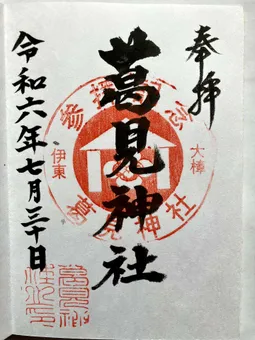 奉拝
葛見神社
令和六年七月三十日
参拝記念
大樟
伊東
葛見神社
葛見神社之印